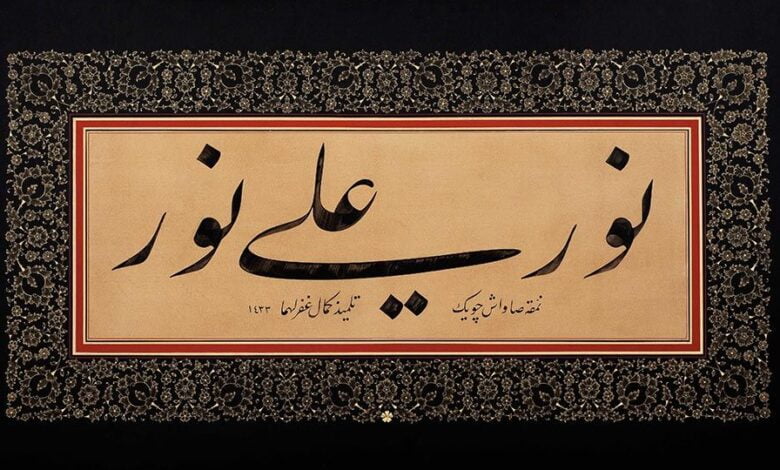 نور علي نور
نمقه صاواش چويك تلميذ كمال غفر لهما ١٤٣٣